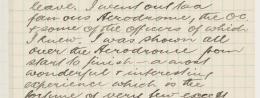 leave. I went out to a
famous Aerodrome, the O.C.
& some of the officers of which
I knew. I was shown all
over the Aerodrome from
start to finish - a most
wonderful & interesting
experience which is the
fortune of very few except